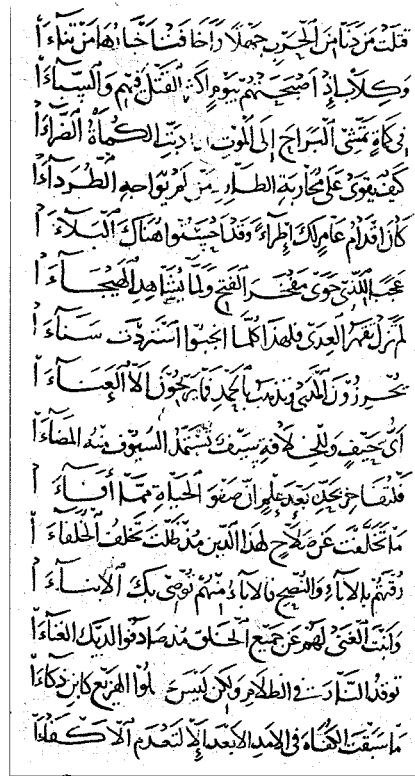 قتلت من دنا من الحرب جهلا وأخافت أخبارها من تناءا
وكلاب إذ أصبحتهم بيوم أكثر القتل فيهم والسباءا
في كماة تمشي البراح إلى الموت دبيب الكماة الضراءا
كيف يقوى على محاربة من لم يواجه الطرداءا
كان اقدام عامر لك إطراء وقد احسنوا هناك البلاءا
عجبا للذي حوى مفخر الفتح ولما يشاهد الهيجاءا
لم تزل تقهر العدى فلهذا كلما انجبوا استزدت سناءا
يحرزون اللهى وتذهب بالحمد فما يربحون الا العناءا
أي حتف وللخلافة سيف تستمد السيوف منه المضاءا
فلتفاخر بحد بعد علم ان صفو الحياة مما أفاءا
ما تخلفت عن صلاح لهذا الدين مذ ظلت تخلف الخلفاءا
رقتهم بالاباء والنصح فالاباء منهم توصي بك الابناءا
وانت الغنى لهم عن جميع الخلق مذ صادفوا لديك الغناءا
توقد النار في الظلام ولكن ليس
ما سبقت الكفاة في الامد الابعد الا لتعدم الاكفاءا